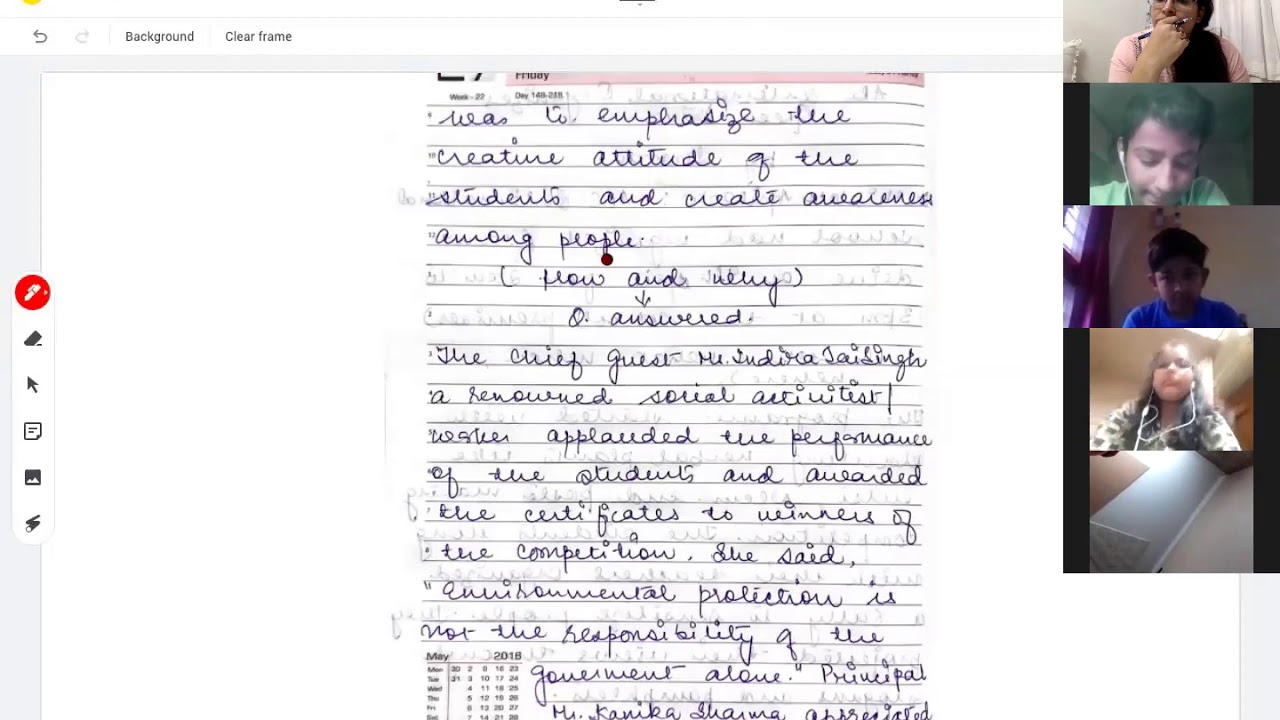 Background Clear frame
Friday
Week - 22 Day 148-218
was to emphasize the
creative attitude of the
students and create awareness
among people.
( How and why )
Q. answered.
The chief guest Mr. Indira JaiSingh
a renowned social activitest /
worker applauded the performance
of the students and awarded
the certificates to winners of
the competition. She said,
"Environmental protection is
not the responsibility of the
government alone." Principal
May 2016
Mon 30 2 9 16 23
Tue 31 3 10 17 24
Wed 4 11 18 25
Thu 5 12 19 26
Fri 6 13 20 27
Sat 7 14 21 28
Mr. Kanika Sharma appreciated